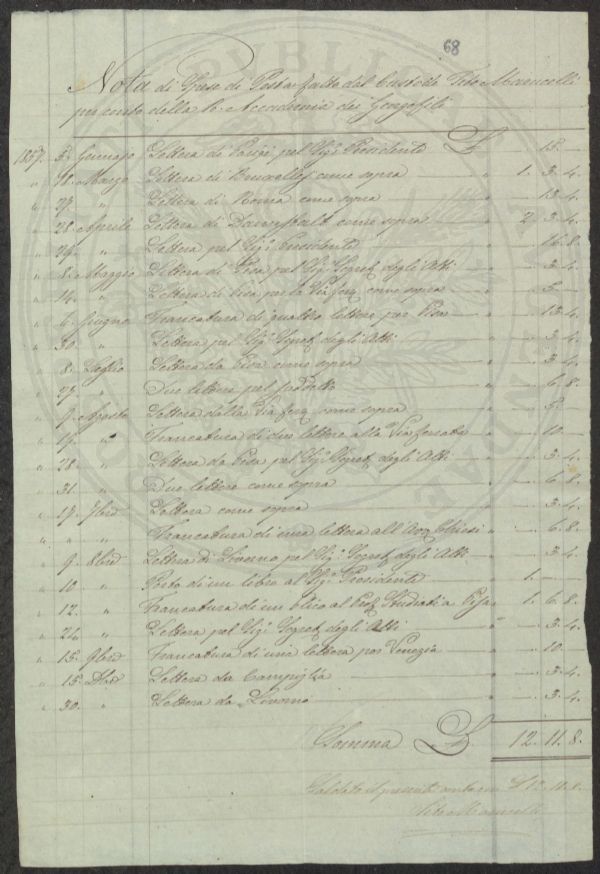 68
Nota di Spese di Posta fatte dal Custode Tito Marucelli
per conto della R. Accademia dei Georgofili
1857. 5. Gennajo Lettera di Parigi pel Sig.e Presidente £ " 15. —
" 18. Marzo Lettera di Bruxelles come sopra " 1. 3. 4.
" 27. " Lettera di Roma come sopra " — 13. 4.
" 28. Aprile Lettera di Darmstadt come sopra " 2. 3. 4.
" 29. " Lettera pel Sig.e Presidente " — 16. 8.
" 8. Maggio Lettera di Pisa pel Sig.e Segret. degli Atti " — 3. 4.
" 14. " Lettera di Pisa per la Via ferr. come sopra " — 5. —
" 4. Giugno Francatura di quattro lettere per Pisa " — 13. 4.
" 30. " Lettera pel Sig.e Segret. degli Atti " — 3. 4.
" 8. Luglio Lettera da Pisa come sopra " — 3. 4.
" 27. " Due lettere pel suddetto " — 6. 8.
" 9. Agosto Lettera dalla Via ferr. come sopra " — 5. —
" 19. " Francatura di due lettere alla Via ferrata " — 10. —
" 28. " Lettera da Pisa pel Sig.e Segret. degli Atti " — 3. 4.
" 31. " Due lettere come sopra " — 6. 8.
" 17. 7bre Lettera come sopra " — 3. 4.
" " " Francatura di una lettera all'Avv. Chiesi " — 6. 8.
" 9. 8bre Lettera di Livorno pel Sig.e Segret. degli Atti " — 3. 4.
" 10. " Porto di un libro al Sig.e Presidente " 1. — —
" 12. " Francatura di un plico al Prof. Studiati a Pisa " 1. 6. 8.
" 24. " Lettera pel Sig.e Segret. degli Atti " — 3. 4.
" 15. 9bre Francatura di una lettera per Venezia " — 10. —
" 15. Xbre Lettera da Campiglia " — 3. 4.
" 30. " Lettera da Livorno " — 3. 4.
Somma £ 12. 11. 8.
Saldato il presente conto in £ 12. 11. 8.
Tito Marucelli